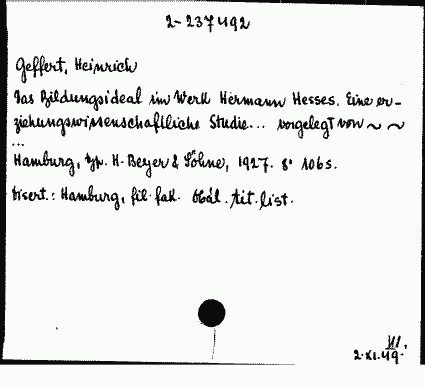 2-237492
Geffert, Heinrich
Das Bildungsideal im Werk Hermann Hesses. Eine er-
ziehungswissenschaftliche Studie... vorgelegt von ~ ~
...
Hamburg, typ. H. Beyer & Söhne, 1927. 8° 106 s.
Disert.: Hamburg, fil. fak. Obál. tit. list.
2.XI.49.